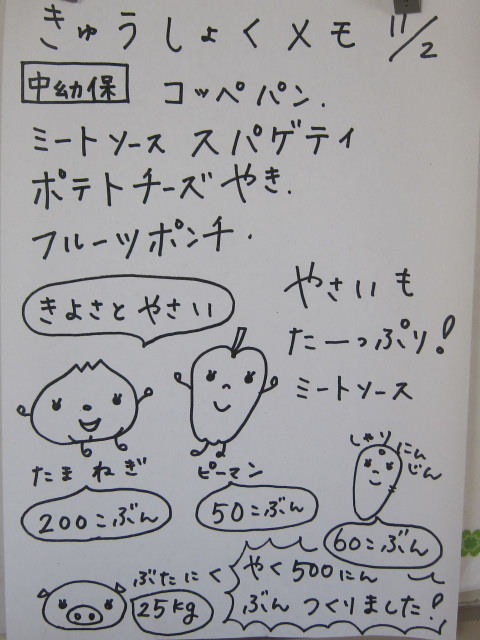 きゅうしょくメモ 11/2
中幼保 コッペパン.
ミートソース スパゲティ
ポテトチーズやき.
フルーツポンチ.
きよさと やさい
やさいも
たーっぷり!
ミートソース
たまねぎ
200こぶん
ピーマン
50こぶん
しゃりにんじん
60こぶん
ぶたにく
25kg
やく500にん
ぶん つくりました!